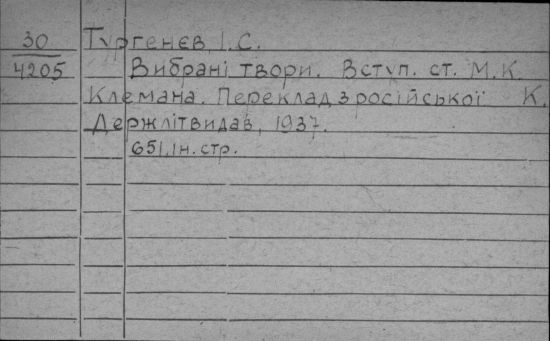 30 Тургенєв, І.С.
4205 Вибрані твори. Вступ. ст. М.К.
Клемана. Переклад з російської К.
Держлітвидав, 1937.
651, ін. стр.